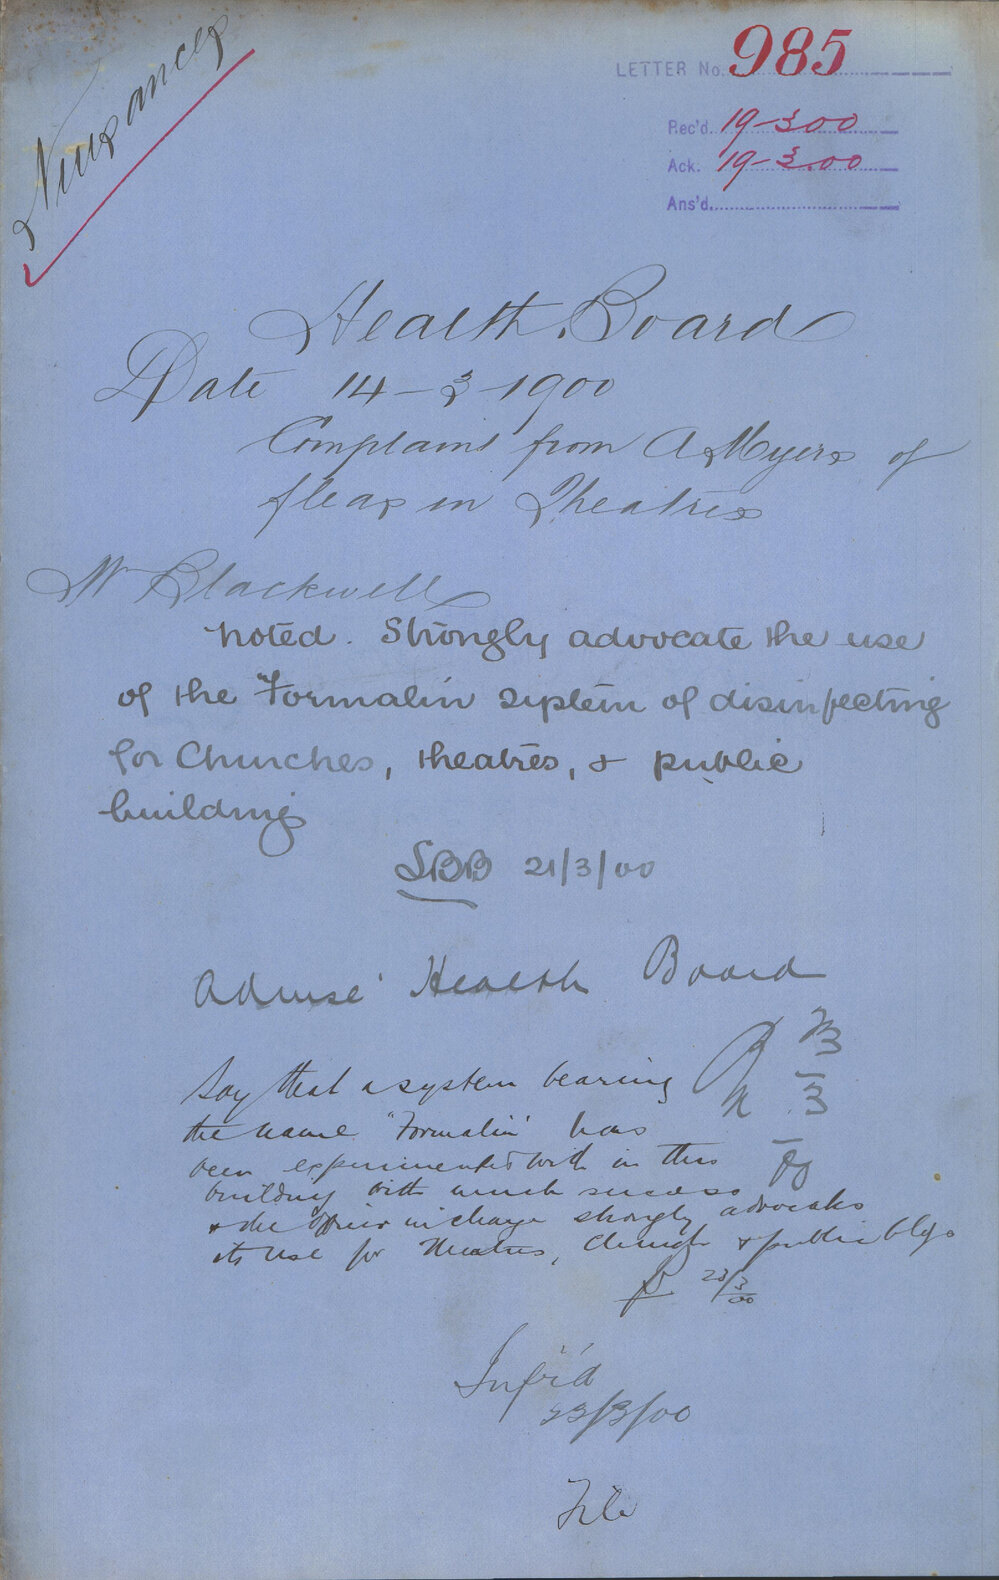 Nuisances
LETTER No. 985
Rec'd. 19-3 00
Ack. 19-3.00
Ans'd.
Health Board
Date 14-3-1900
Complaint from A Myers of
fleas in Theatres
Mr Blackwell
noted. Strongly advocate the use
of the "Formalin system of disinfecting
for Churches, theatres, & public
buildings
SBB 21/3/00
Advise Health Board
Say that a system bearing
the name "Formalin" has
been experimented with in this
building with much success
& the Officer in charge strongly advocates
its use for Theatres, Church & public blgs
23/3/00
Inf'd
23/3/00
File